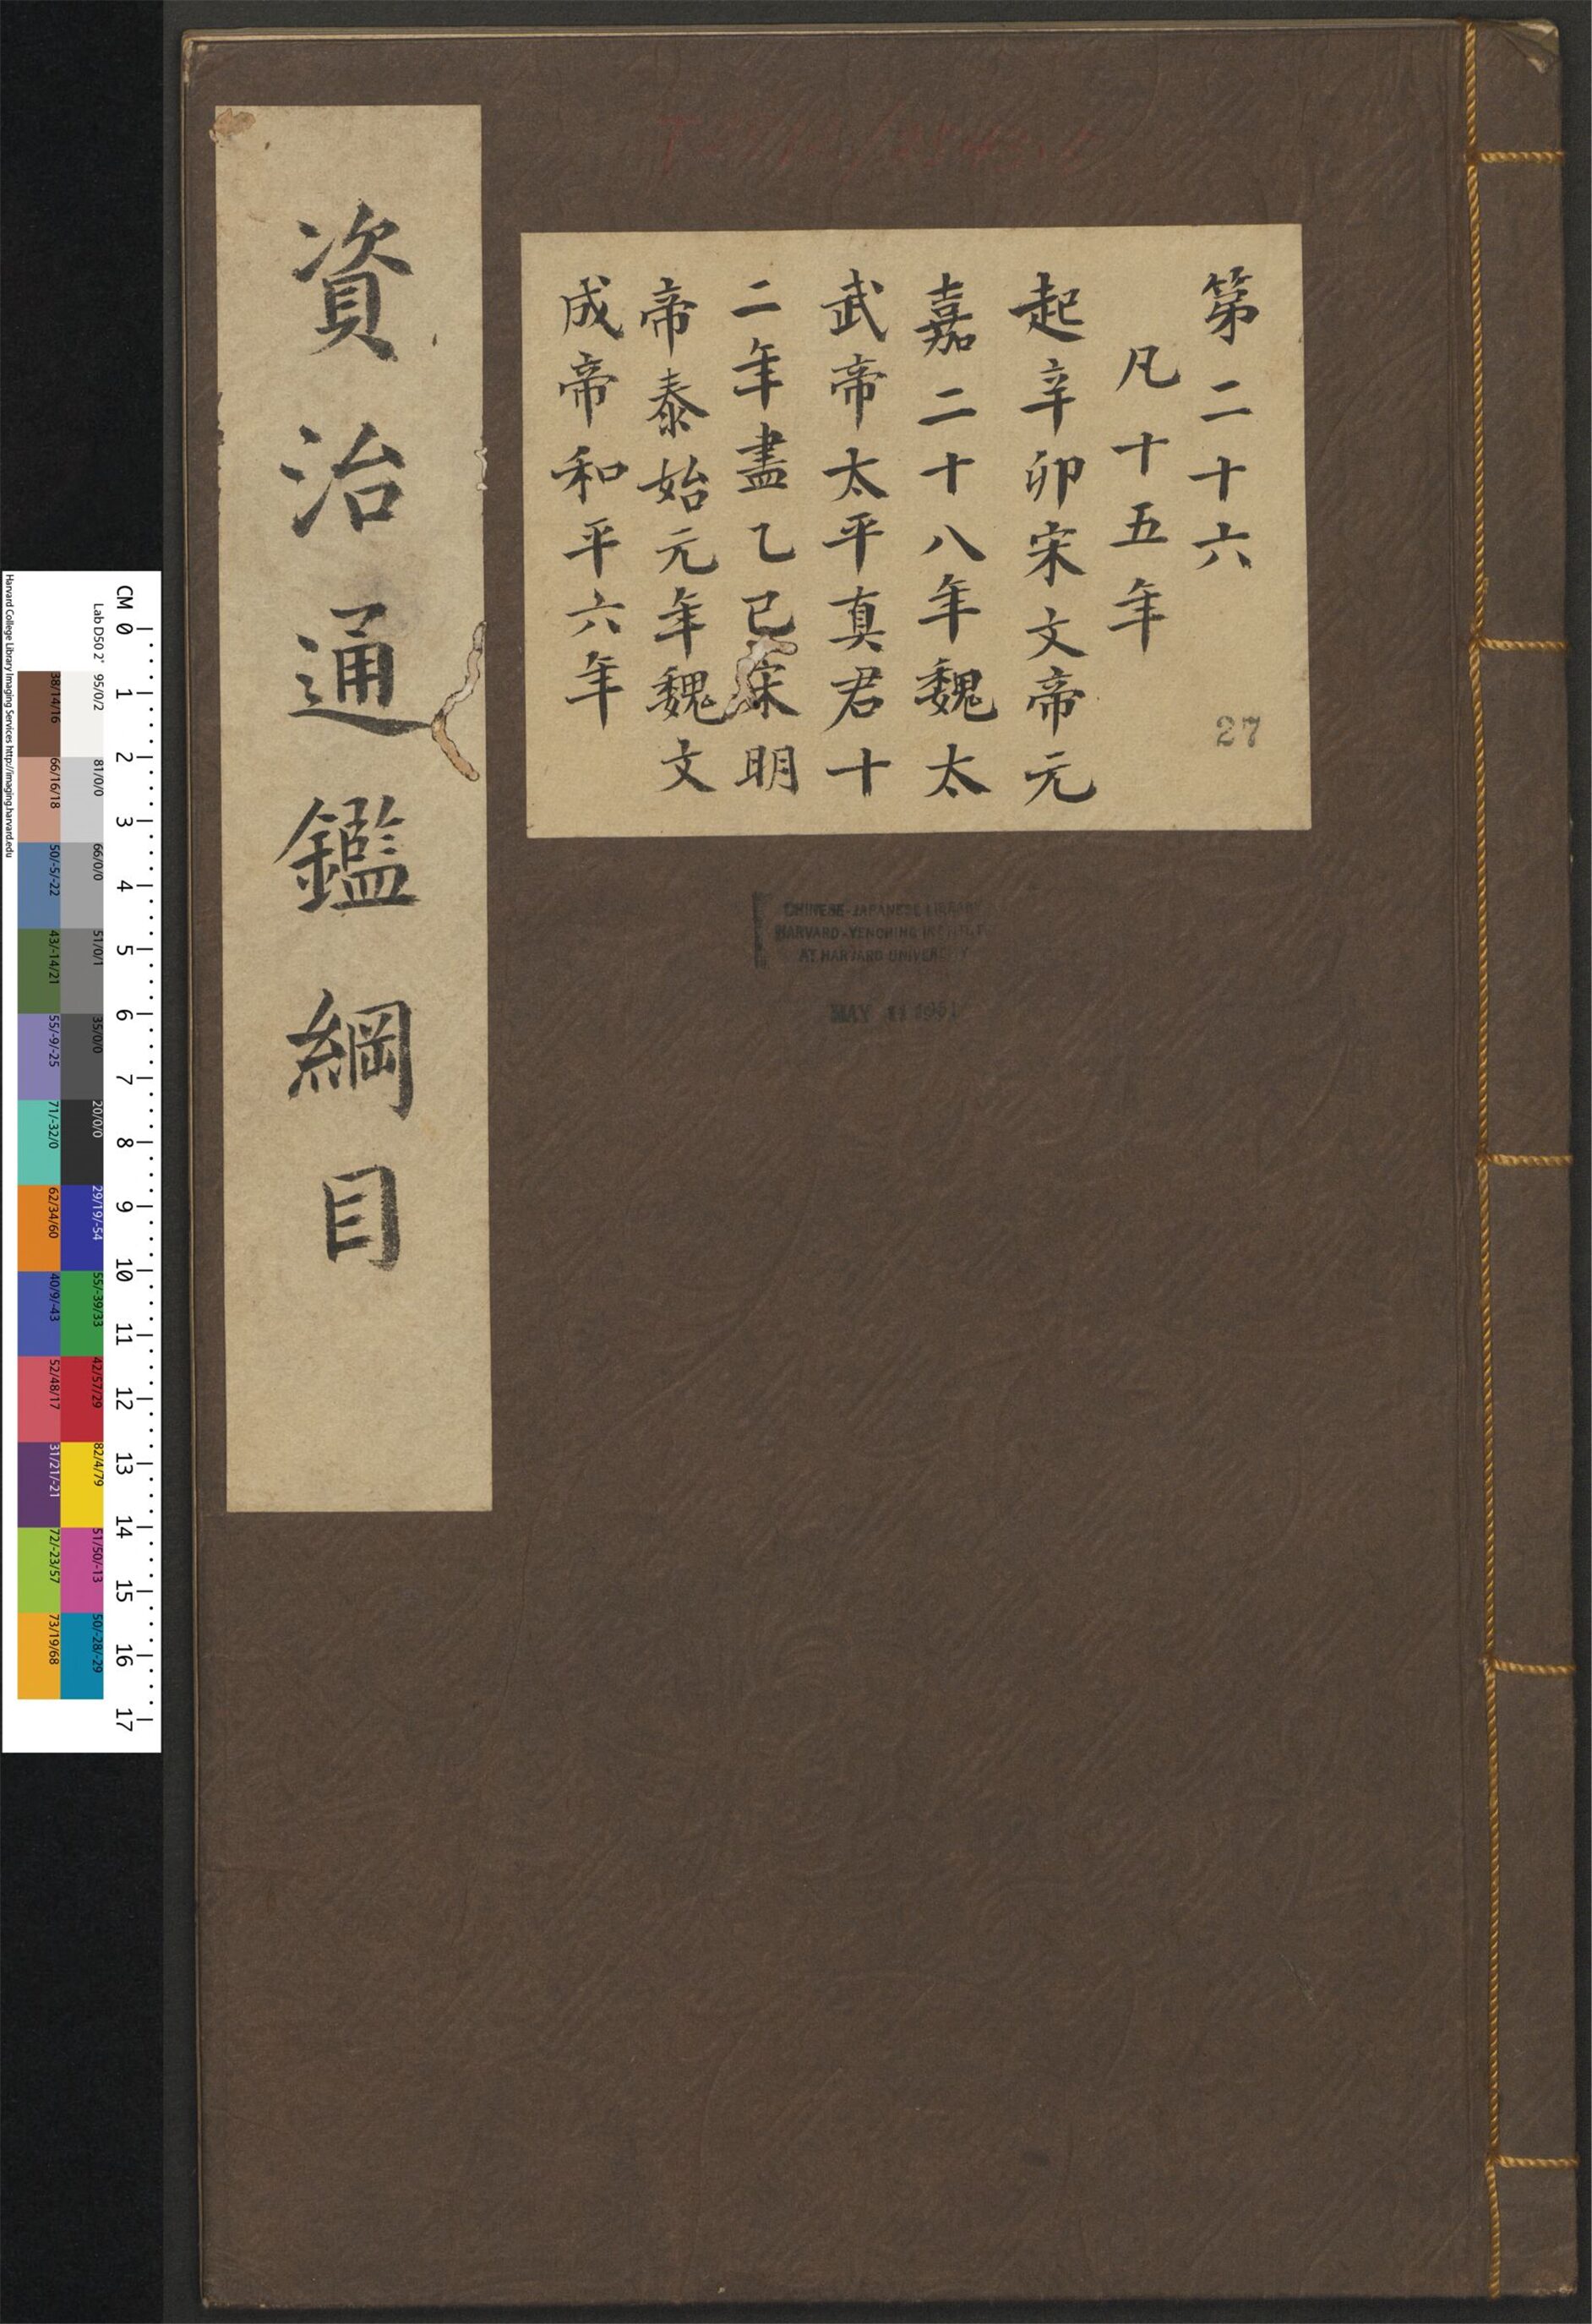 資治通鑑綱目
第二十六
凡十五年
起辛卯宋文帝元
嘉二十八年魏太
武帝太平真君十
二年盡乙巳宋明
帝泰始元年魏文
成帝和平六年
27
CHINESE-JAPANESE LIBRARY
HARVARD-YENCHING INSTITUTE
AT HARVARD UNIVERSITY
MAY 11 1951
CM 0 1 2 3 4 5 6 7 8 9 10 11 12 13 14 15 16 17
Lab D50 2° 95/0/2 81/0/0 66/0/0 51/0/1 35/0/0 20/0/0 29/19/-54 55/-39/33 42/57/29 82/4/79 51/50/-13 50/-28/-29
38/14/16 66/16/18 50/-5/-22 43/-14/21 55/-9/-25 71/-32/0 62/34/60 40/9/-43 52/48/17 31/21/-21 72/-23/57 73/19/68
Harvard College Library Imaging Services http://imaging.harvard.edu